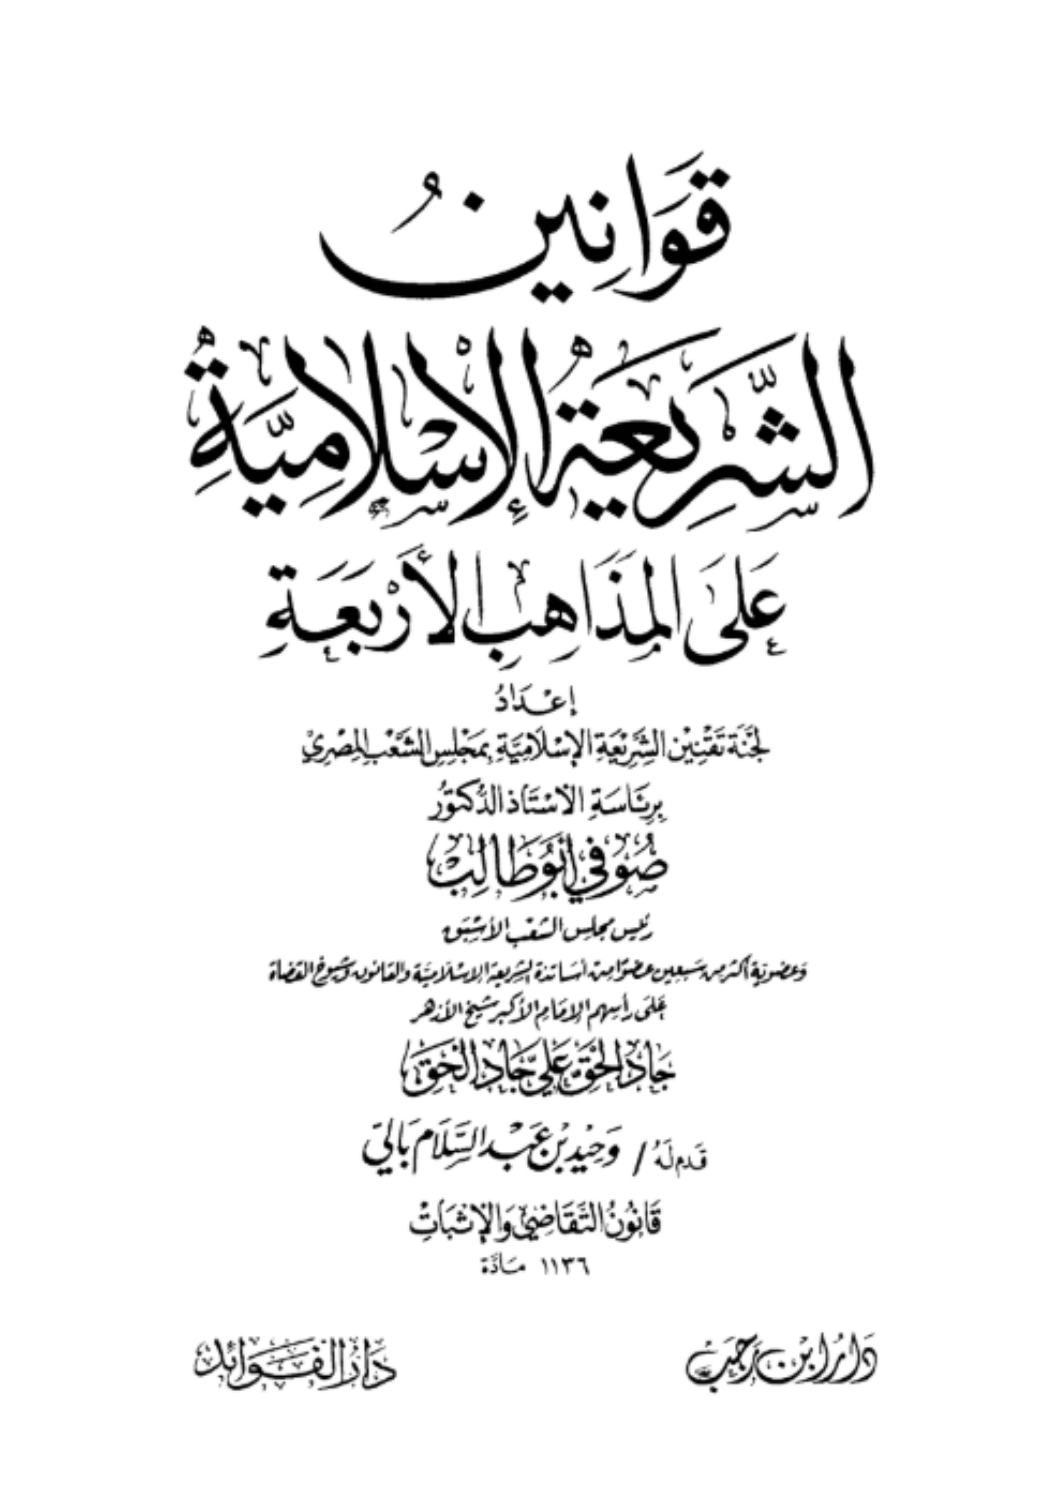 قَوَانِينُ
الشَّرِيعَةُ الإِسْلَامِيَّةُ
عَلَى المَذَاهِبِ الأَرْبَعَةِ
إِعْدَادُ
لَجْنَة تَقْنِيْن الشَّرِيْعَةِ الإِسْلَامِيَّةِ بِمَجْلِسِ الشَّعْبِ المِصْرِيّ
بِرِئَاسَةِ الأُسْتَاذ الدُّكتوُر
صُوْفي أَبُوُ طَالِبْ
رئيس مجلس الشعب الأسْبَق
وَعضويّة أكثر من سَبعين عضوًا من أسَاتذة الشريعة الإسْلاميَّة والقانون وشيوخ القضاة
عَلى رأسِهم الإمَام الأكبر شيخ الأزهر
جَاد الحَقّ عَلي جَاد الحَقّ
قَدم لَهُ / وَحيْد بْن عَبْد السَّلَام بَالي
قَانُونُ التَّقَاضِيْ وَالإِثْبَاتْ
١١٣٦ مَادَّة
دَارُ ابْن رَجَبْ
دَارُ الفَوَائِد